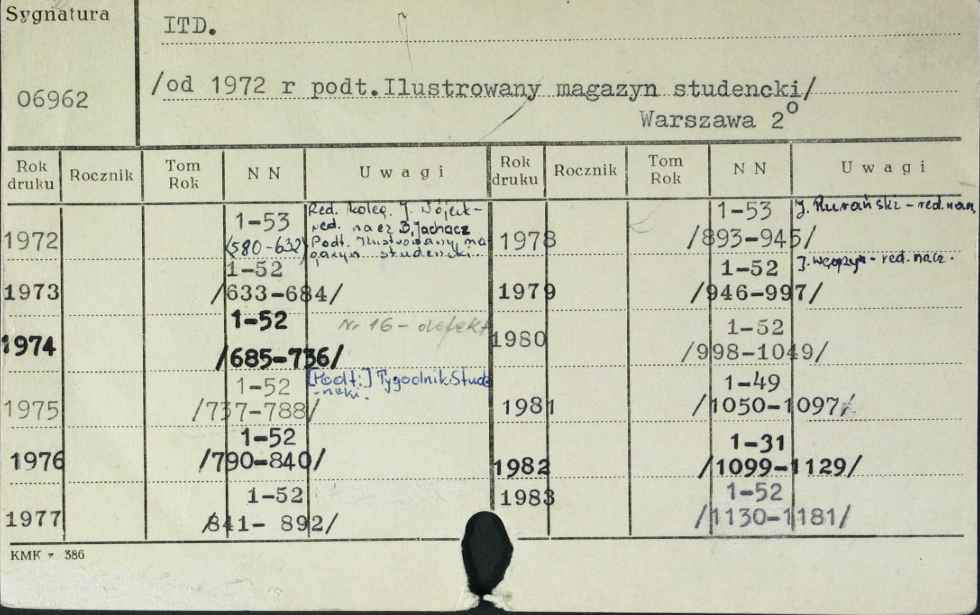 Sygnatura
ITD.
06962
/od 1972 r podt.Ilustrowany magazyn studencki/
Warszawa 2°
Rok druku Rocznik Tom Rok N N Uwagi Rok druku Rocznik Tom Rok N N Uwagi
1972 1-53 Red. koleg. J. Wójcik-
(580-632) red. nacz B. Jachacz
Podt. Ilustrowany ma
gazyn studencki.
1973 1-52
/633-684/
1974 1-52 Nr 16 - defekt
/685-736/
1975 1-52 [Podt:] Tygodnik Stude
/737-788/ -ncki.
1976 1-52
/790-840/
1977 1-52
/841- 892/
1978 1-53 J. - red. nacz.
/893-945/
1979 1-52 J. - red. nacz.
/946-997/
1980 1-52
/998-1049/
1981 1-49
/1050-1097/
1982 1-31
/1099-1129/
1983 1-52
/1130-1181/
KMK - 386